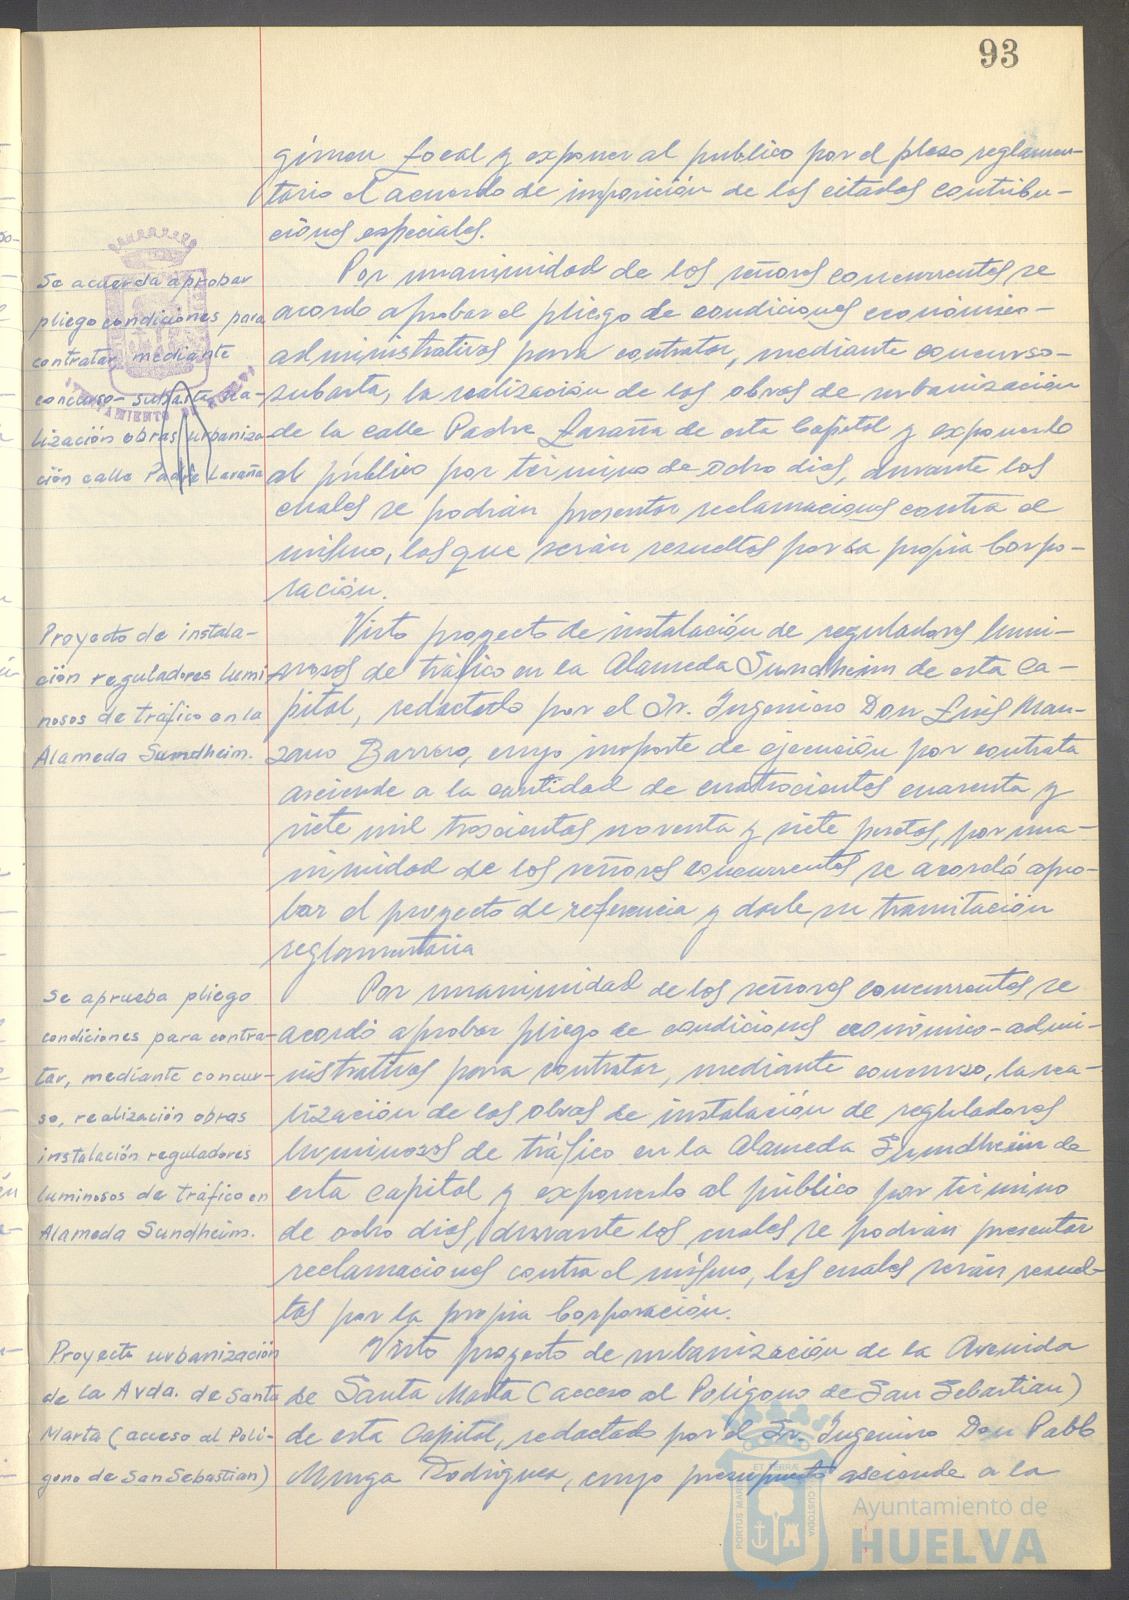 93
gimen Local y exponer al publico por el plazo reglamen-
tario el acuerdo de imposición de las citadas contribu-
ciones especiales.
Se acuerda aprobar
pliego condiciones para
contratar, mediante
concurso-subasta rea-
lización obras urbaniza-
ción calle Padre Laraña
Por unanimidad de los señores concurrentes se
acordo aprobar el pliego de condiciones económico-
administrativas para contratar, mediante concurso-
subasta, la realización de las obras de urbanización
de la calle Padre Laraña de esta Capital y exponerlo
al público por término de ocho dias, durante los
cuales se podrán presentar reclamaciones contra el
mismo, las que serán resueltas por la propia Corpo-
ración.
Proyecto de instala-
ción reguladores lumi
nosos de tráfico en la
Alameda Sundheim.
Visto proyecto de instalación de reguladores lumi-
nosos de tráfico en la Alameda Sundheim de esta Ca-
pital, redactado por el Sr. Ingeniero Don Luis Man-
zano Barrero, cuyo importe de ejecución por contrata
asciende a la cantidad de cuatrocientas cuarenta y
siete mil trescientas noventa y siete pesetas, por una-
nimidad de los señores concurrentes se acordó apro-
bar el proyecto de referencia y darle su tramitación
reglamentaria
Se aprueba pliego
condiciones para contra-
tar, mediante concur-
so, realización obras
instalación reguladores
luminosos de tráfico en
Alameda Sundheim.
Por unanimidad de los señores concurrentes se
acordó aprobar pliego de condiciones económico-admi-
nistrativas para contratar, mediante concurso, la rea-
lización de las obras de instalación de reguladores
luminosos de tráfico en la Alameda Sundheim de
esta Capital y exponerlo al público por término
de ocho dias, durante los cuales se podrán presentar
reclamaciones contra el mismo, las cuales serán resuel-
tas por la propia Corporación.
Proyecto urbanización
de la Avda. de Santa
Marta (acceso al Polí-
gono de San Sebastian)
Visto proyecto de urbanización de la Avenida
de Santa Marta (acceso al Polígono de San Sebastian)
de esta Capital, redactado por el Sr. Ingeniero Don Pablo
Munga Rodriguez, cuyo presupuesto asciende a la
Ayuntamiento de
HUELVA